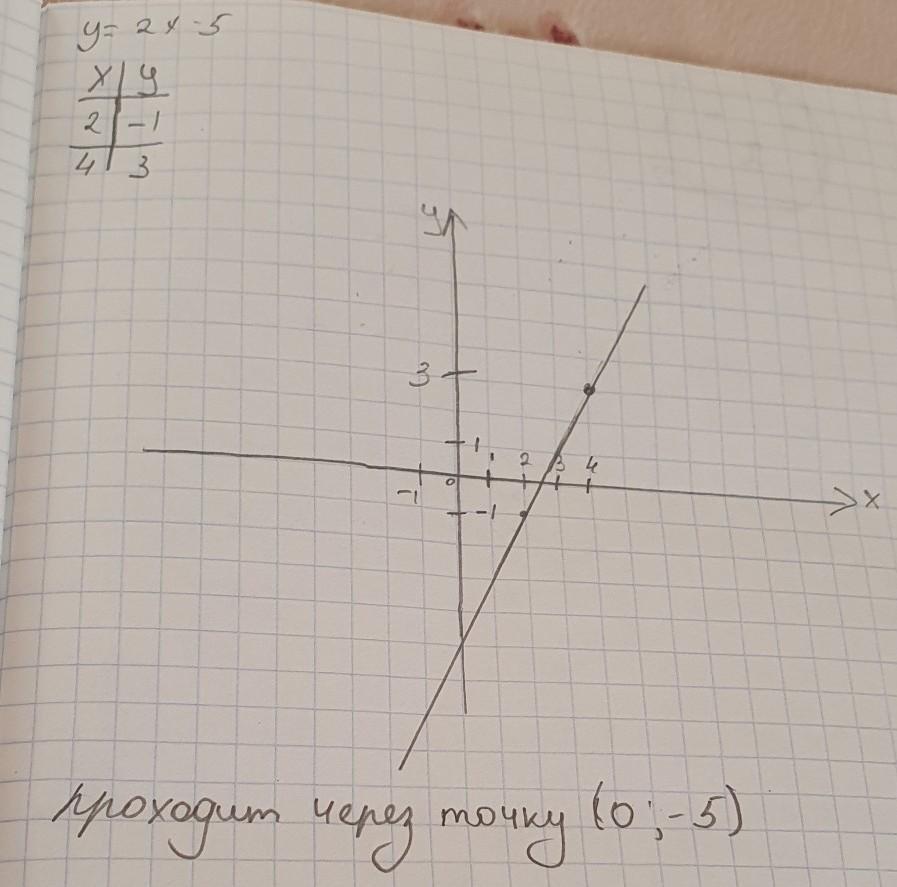 y = 2x - 5
x | y
2 | -1
4 | 3
y
3
1
1 2 3 4
-1 0 x
-1
проходит через точку (0; -5)